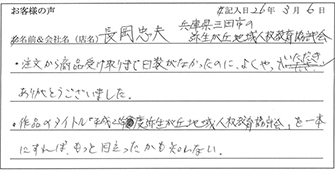 お客様の声
記入日26年3月6日
お名前&会社名(店名) 長岡忠夫 兵庫県三田市の
弥生が丘地域人权教育協議会
・注文から商品受け取りまで日数がなかったのに、よくやっていただき
ありがとうございました。
・作品のタイトル"平成25年度弥生が丘地域人权教育協議会"を一本
にすれば、もっと目立ったかも知れない。